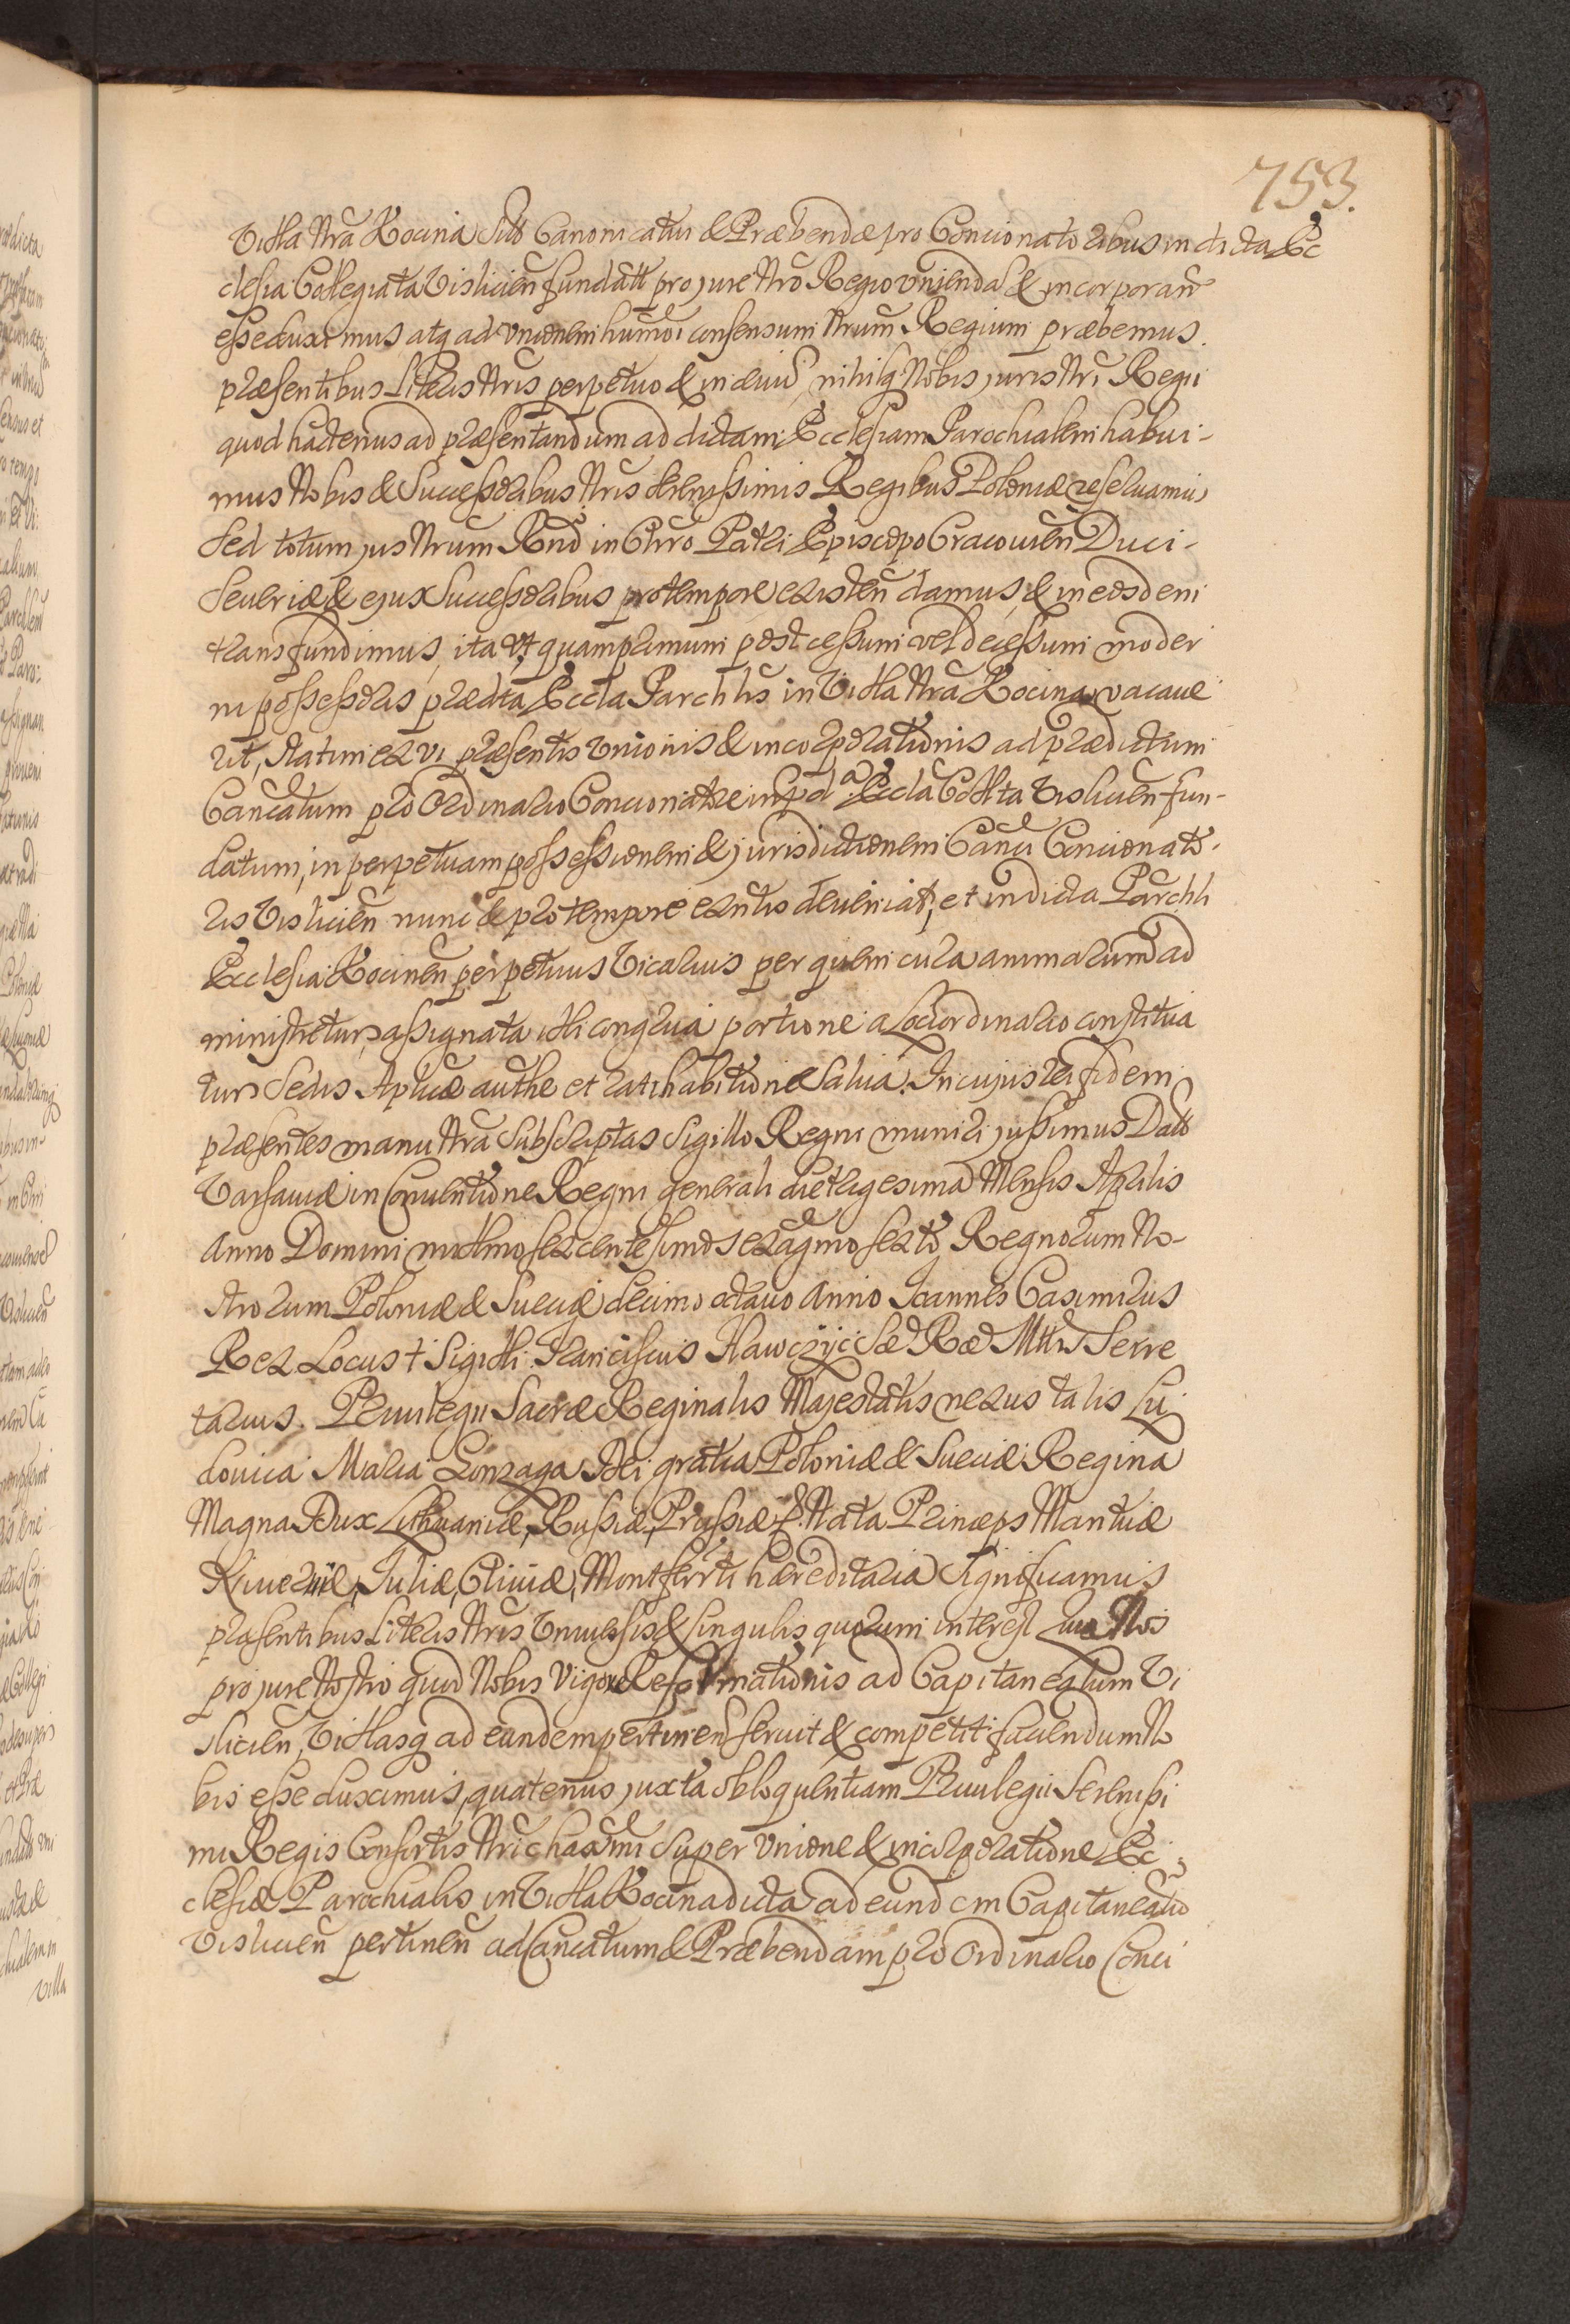 753.
Villa Nrã Kocina Sitt Canonicatui & Præbendæ pro Concionatoribus in dicta Ec
clesia Collegiata Vislicieñ fundatt pro jure Nrõ Regio uniendã & incorporañ
esse duximus, atq ad Unionem humõi consensum Nrum Regium præbemus.
præsentibus Literis Nris perpetuo & in ævũ, nihilq Nobis juris Nri Regii
quod hactenus ad præsentandum ad dictam Ecclesiam Parochialem habui-
mus Nobis & Successoribus Nris Serenissimis Regibus Poloniæ reservamus
Sed totum jus Nrum Rndõ in Chro Patri Episcopo Cracovien Duci-
Severiæ & ejus Successoribus pro tempore existeñ damus, & in eosdem
transfundimus, ita Vt quamprimum post cessum vel decessum moder
ni possessoris prædta Eccla Parchlis in Villa Nra Kocina vacave
rit, statim ex vi præsentis Unionis & incorporationis ad prædictum
Cancatum pro Ordinario Concionatore in pd a Eccla Collta Visliciεn fun-
datum, in perpetuam possessionem & jurisdictionem Canci Concionato-
ris Vislicien nunc & pro tempore exntis deveniat, et in dicta Parchli
Ecclesia Kocinen perpetuus Vicarius per quem cura animarum ad
ministretur, assignata illi congrua portione a Loci ordinario constitua
tur, Sedis Aplicæ authe et ratihabitione Salva. In cujus rei fidem
præsentes manu Nra Subscriptas Sigillo Regni muniri jussimus Datt
Varsaviæ in Conventione Regni generali die trigesima Mensis Aprilis
Anno Domini millmo sexcentesimo sexagmo sexto, Regnorum No-
strorum Poloniæ & Sueciæ decimo octavo Anno Joannes Casimirus
Rex Locus † Sigilli. Franciscus Hawczyc Sæ Ræ Mttis Secre
tarius. Privilegii Sacræ Reginalis Majestatis nexus talis Lu
dovica Maria Gonzaga Dei gratia Poloniæ & Sueciæ Regina
Magna Dux Lithuaniæ, Russiæ, Prussiæ &. Nata Princeps Mantuæ
Niveriæ, Juliæ, Cliviæ, Montferrti hæreditaria Significamus
præsentibus Literis Nris Universis & singulis quorum interest quia Nos
pro jure Nostro quod Nobis Vigore Reformationis ad Capitaneatum Vi
slicien, Villasq ad eundem pertinen servit & competit faciendum No
bis esse duximus, quatenus juxta obloquentiam Privilegii Serenissi
mi Regis Consortis Nri chasmi Super Unione & incorporatione Ec
clesiæ Parochialis in Villa Kocina dicta ad eundem Capitaneatũ
Visliciεn pertineñ ad Cancatum & Præbendam pro Ordinario Conci